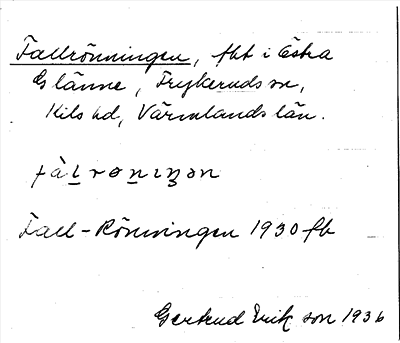 Tallrönningen, tht i Östra
Glänne, Frykeruds sn,
Kils hd, Värmlands län.
tàl rønıŋən
Tall-Rönningen 1930 fb
Gertrud Erikson 1936